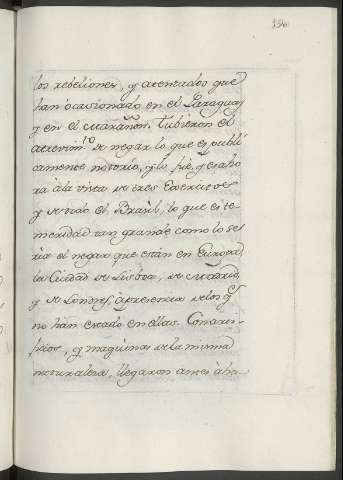 196
los rebeliones, y atentados que
han ocasionado en el Paraguay
y en el Marañon. Tubieron el
atrevim.to de negar lo que es publi
camente notorio, y lo fue, y es aho
ra à la vista de tres Exercitos
y de todo el Brasil, lo que es te
meridad tan grande como lo se
ria el negar que están en Europa
la Ciudad de Lisboa, de Madrid,
y de Londres, à presencia de los q.e
no han estado en ellas. Con arti-
ficios, y maquinas de la misma
naturaleza, llegaron antes à ha-